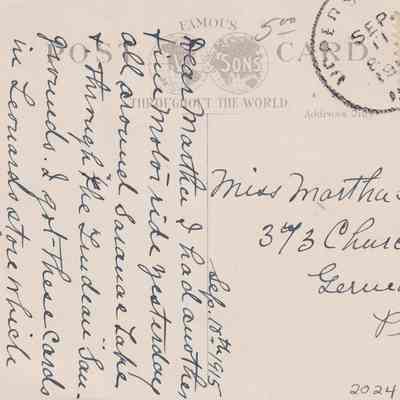 FAMOUS
POST CARD
& SONS
THROUGHOUT THE WORLD
Address Only
500
SEP.
11
Dear Martha I had another
fine motor ride yesterday
all around Saranac Lake
& through the Trudeau San-
grounds. I got these cards
in Leonards store which
Sep. 10th 1915
Miss Martha
373 Churc
Germ
P
2024